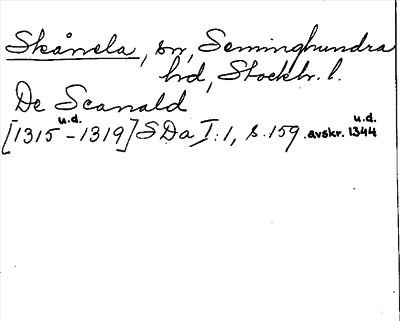 Skånela, sn, Seminghundra
hd, Stockh. l.
De Scanald
[1315 u.d. - 1319] SDa I:1, s. 159. avskr. 1344 u.d.